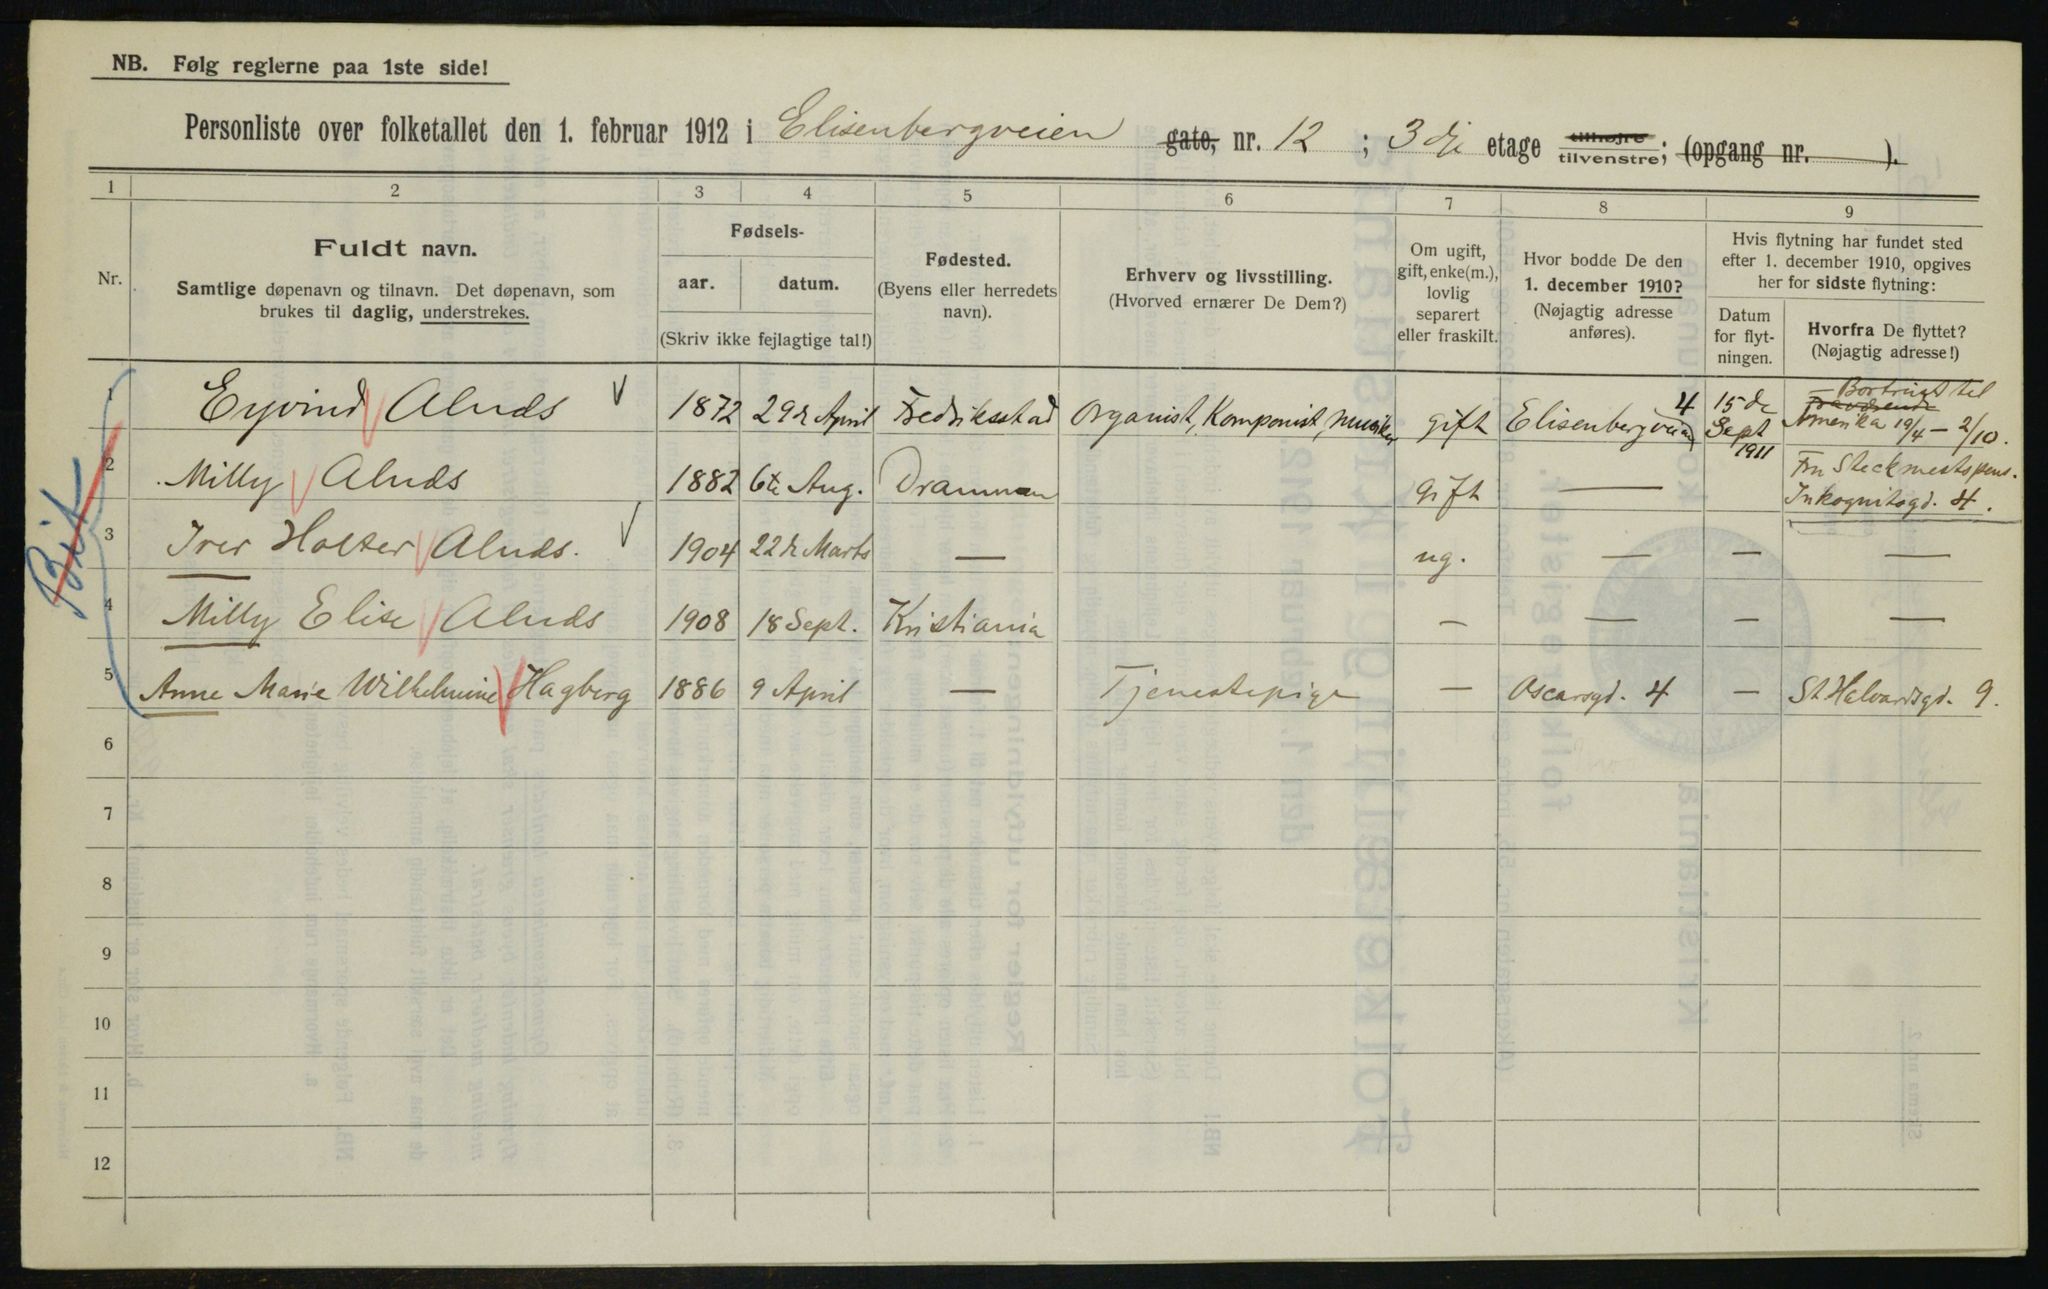 NB. Følg reglerne paa 1ste side!
Personliste over folketallet den 1. februar 1912 i Elisenbergveien gate, nr. 12 ; 3dje etage tilhøjre tilvenstre; (opgang nr. ).
1 2 3 4 5 6 7 8 9
Nr.
Fuldt navn.
Samtlige døpenavn og tilnavn. Det døpenavn, som
brukes til daglig, understrekes.
Fødsels-
aar. datum.
(Skriv ikke fejlagtige tal!)
Fødested.
(Byens eller herredets
navn).
Erhverv og livsstilling.
(Hvorved ernærer De Dem?)
Om ugift,
gift, enke(m.),
lovlig
separert
eller fraskilt.
Hvor bodde De den
1. december 1910?
(Nøjagtig adresse
anføres).
Hvis flytning har fundet sted
efter 1. december 1910, opgives
her for sidste flytning:
Datum
for flyt-
ningen.
Hvorfra De flyttet?
(Nøjagtig adresse!)
1 Eyvind Alnæs 1872 29de April Fredriksstad Organist, Komponist, gift Elisenbergveien 4 15de Sept 1911 Bortreist til Amerika 19/4 – 2/10.
2 Milly Alnæs 1882 6te Aug. Drammen gift — Inkognitogd. 4.
3 Iver Holter Alnæs. 1904 22de Marts — ug. — — —
4 Milly Elise Alnæs 1908 18 Sept. Kristiania — — — —
5 Anne Marie Wilhelmine Hagberg 1886 9 April — Tjenestepige — Oscarsgd. 4 — St Halvardsgd. 9.
6
7
8
9
10
11
12